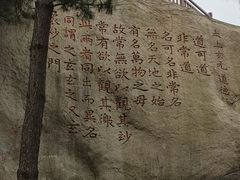 太上玄元道德
道可道
非常道
名可名非常名
無名天地之始
有名萬物之母
故常無欲以觀其妙
常有欲以觀其徼
此兩者同出而異名
同謂之玄玄之又玄
眾妙之門